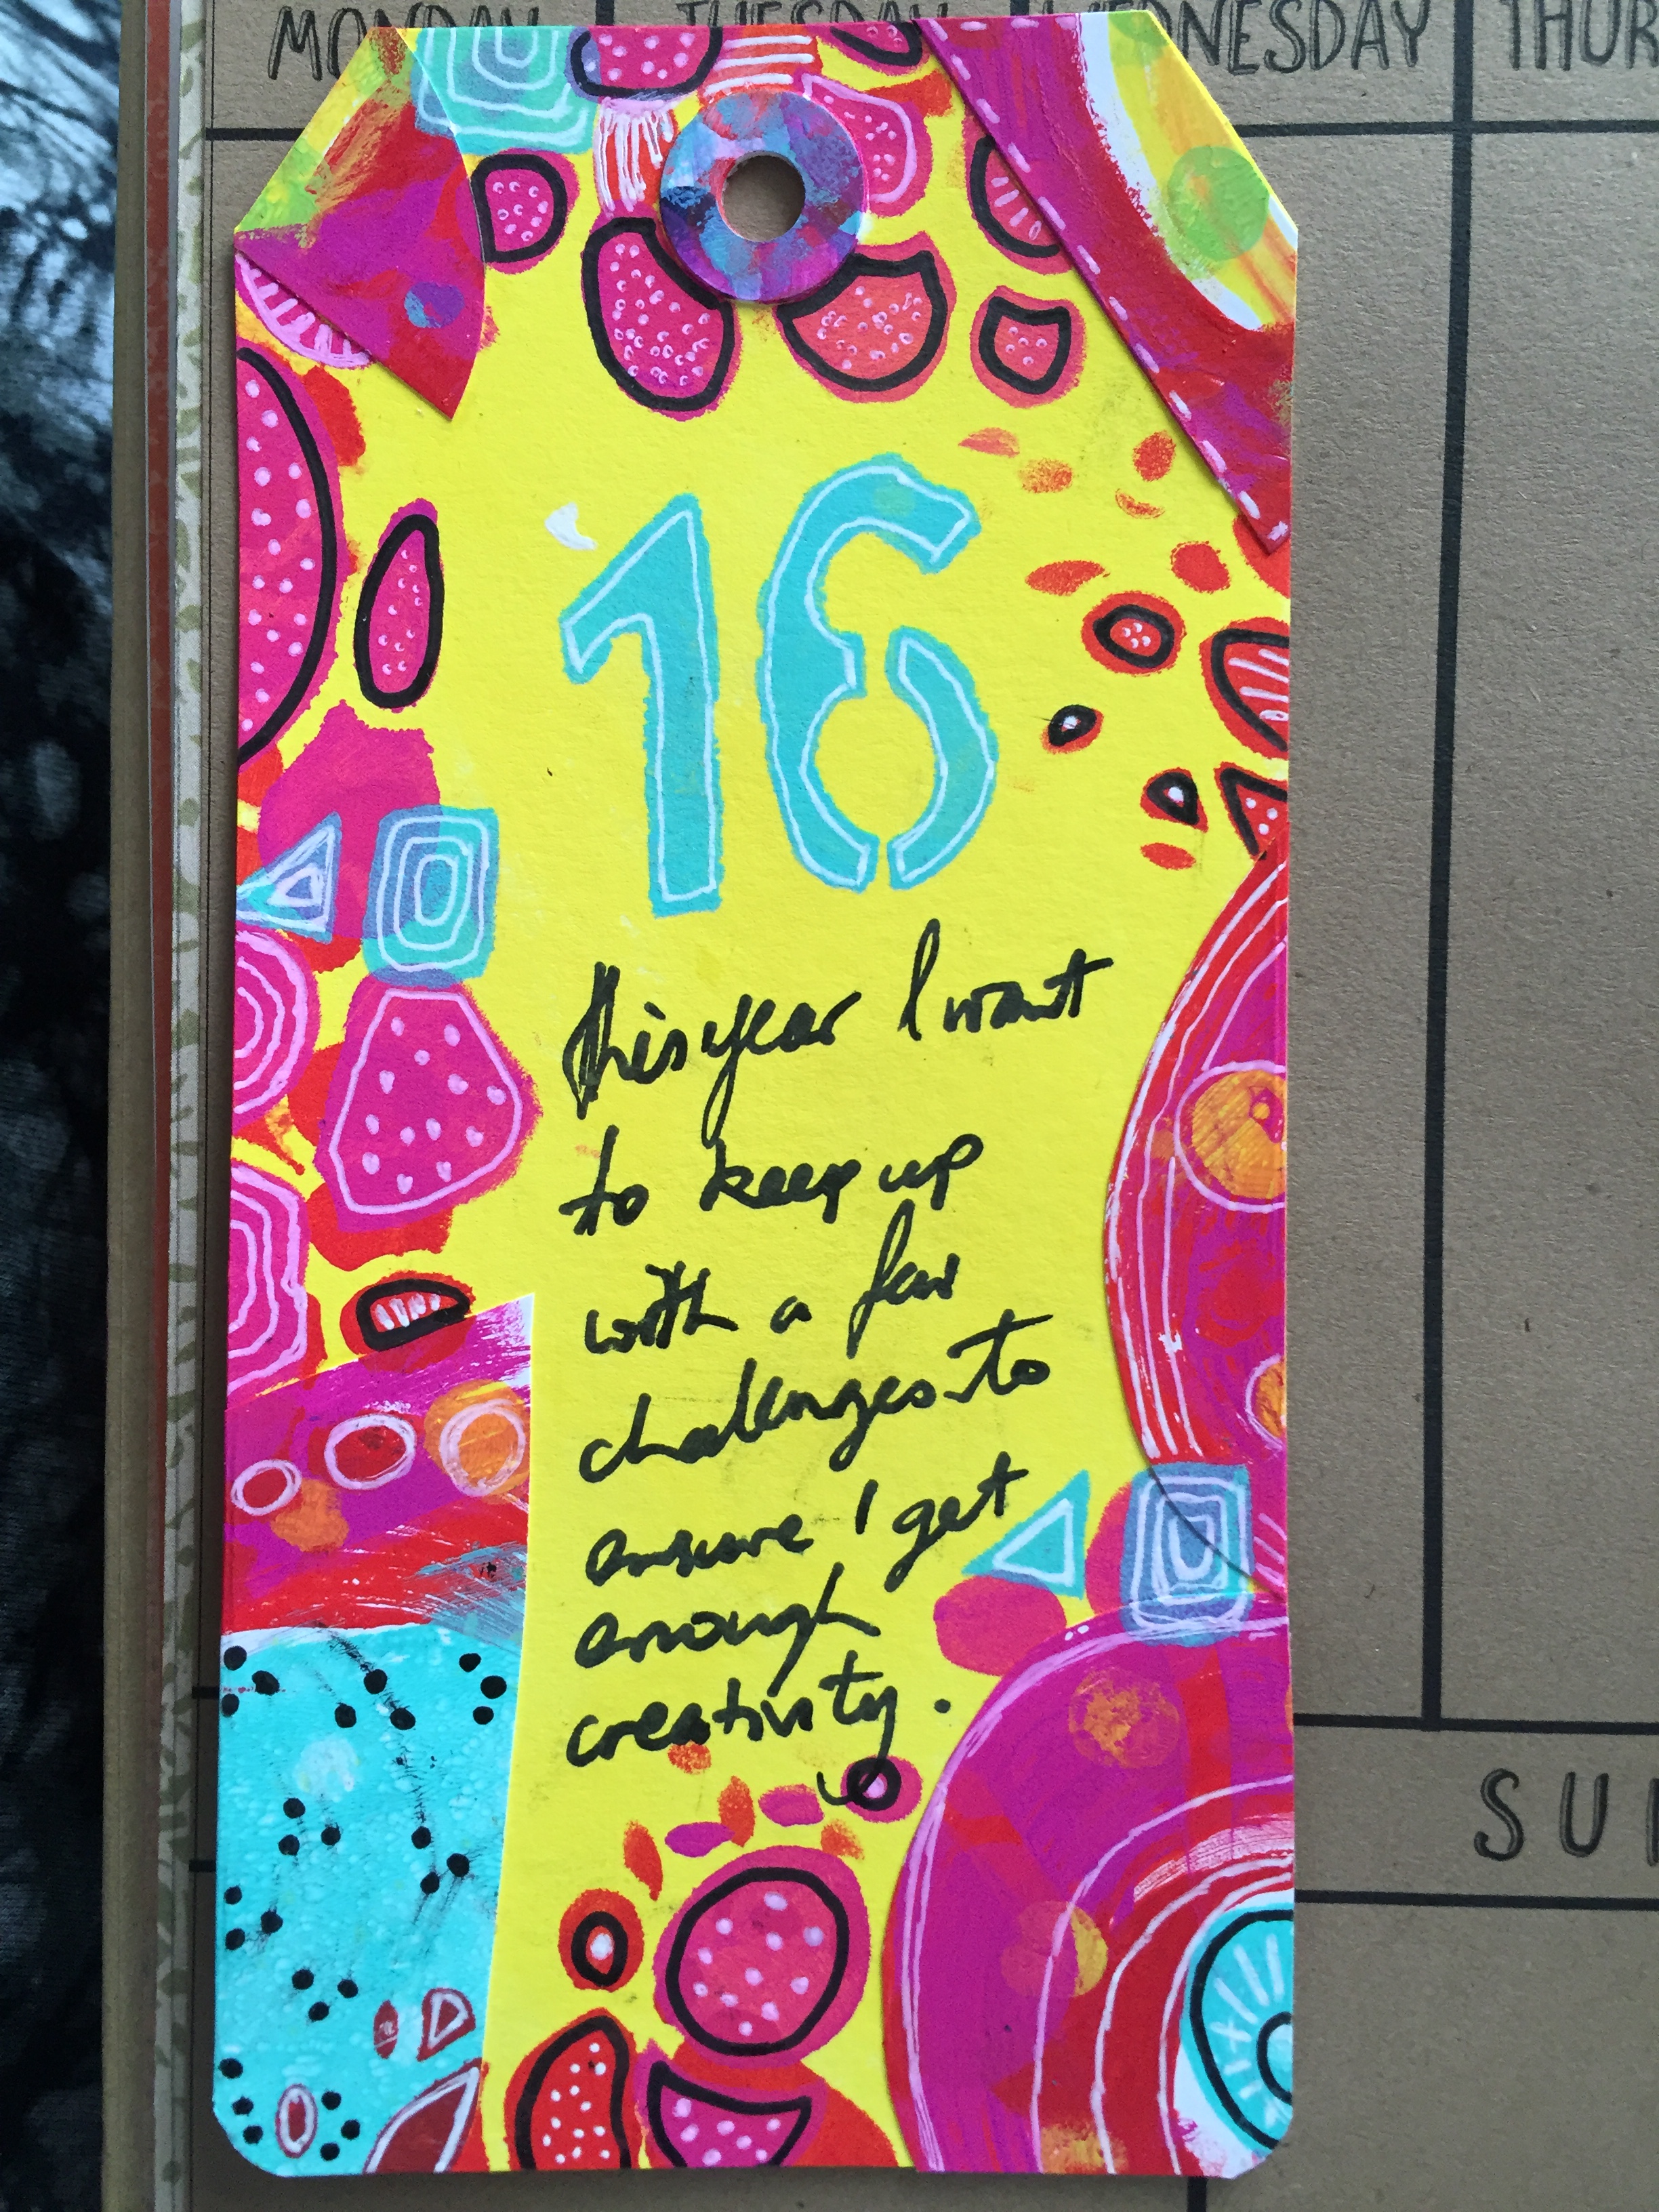 MONDAY TUESDAY WEDNESDAY THUR
16
this year I want
to keep up
with a few
challenges to
ensure I get
enough
creativity.
SUN